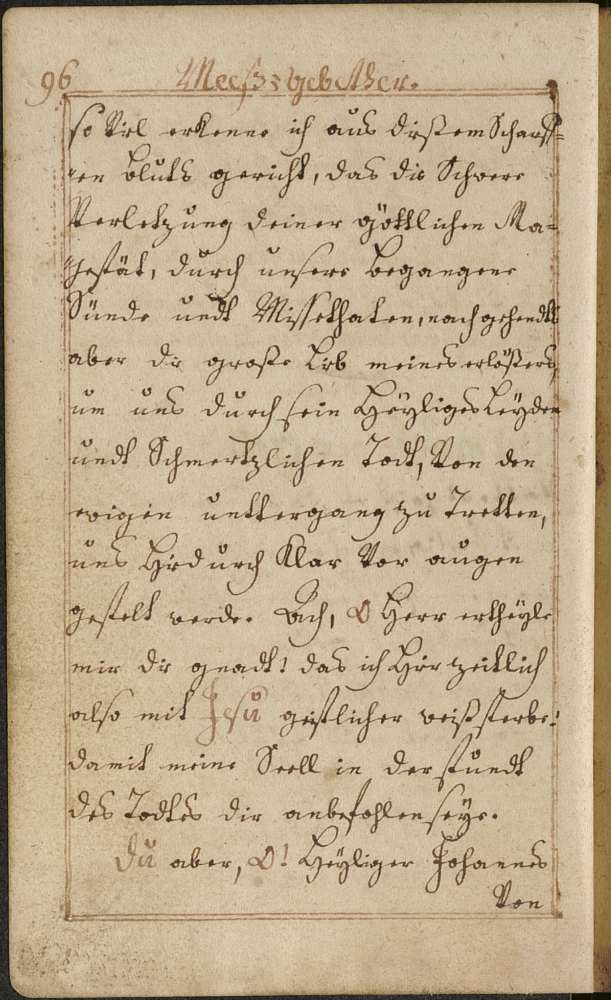 96 Mees=gebether.
so Vil erkenne ich aus dißem Scharff=
en bluts gericht, das die Schwere
Verletzung deiner göttlichen Ma=
jestät, durch unsere begangene
Sünde undt Missethaten, nachgehendts
aber die große Lieb meines erlößers,
um uns durch sein Heyliges Leyden
undt Schmertzlichen Todt, Von den
ewigen untergang zu Tretten,
uns hirdurch Klar Vor augen
gestelt werde. Ach, O Herr ertheyle
mir die gnadt! das ich hir zeitlich
also mit Jesu geistlicher weiß sterbe!
damit meine Seell in der stundt
des Todtes dir anbefohlen seye.
Du aber, O! Heyliger Johannes
Von